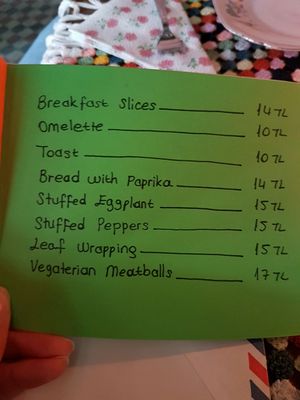 Breakfast Slices 14 TL
Omelette 10 TL
Toast 10 TL
Bread with Paprika 14 TL
Stuffed Eggplant 15 TL
Stuffed Peppers 15 TL
Leaf Wrapping 15 TL
Vegaterian Meatballs 17 TL